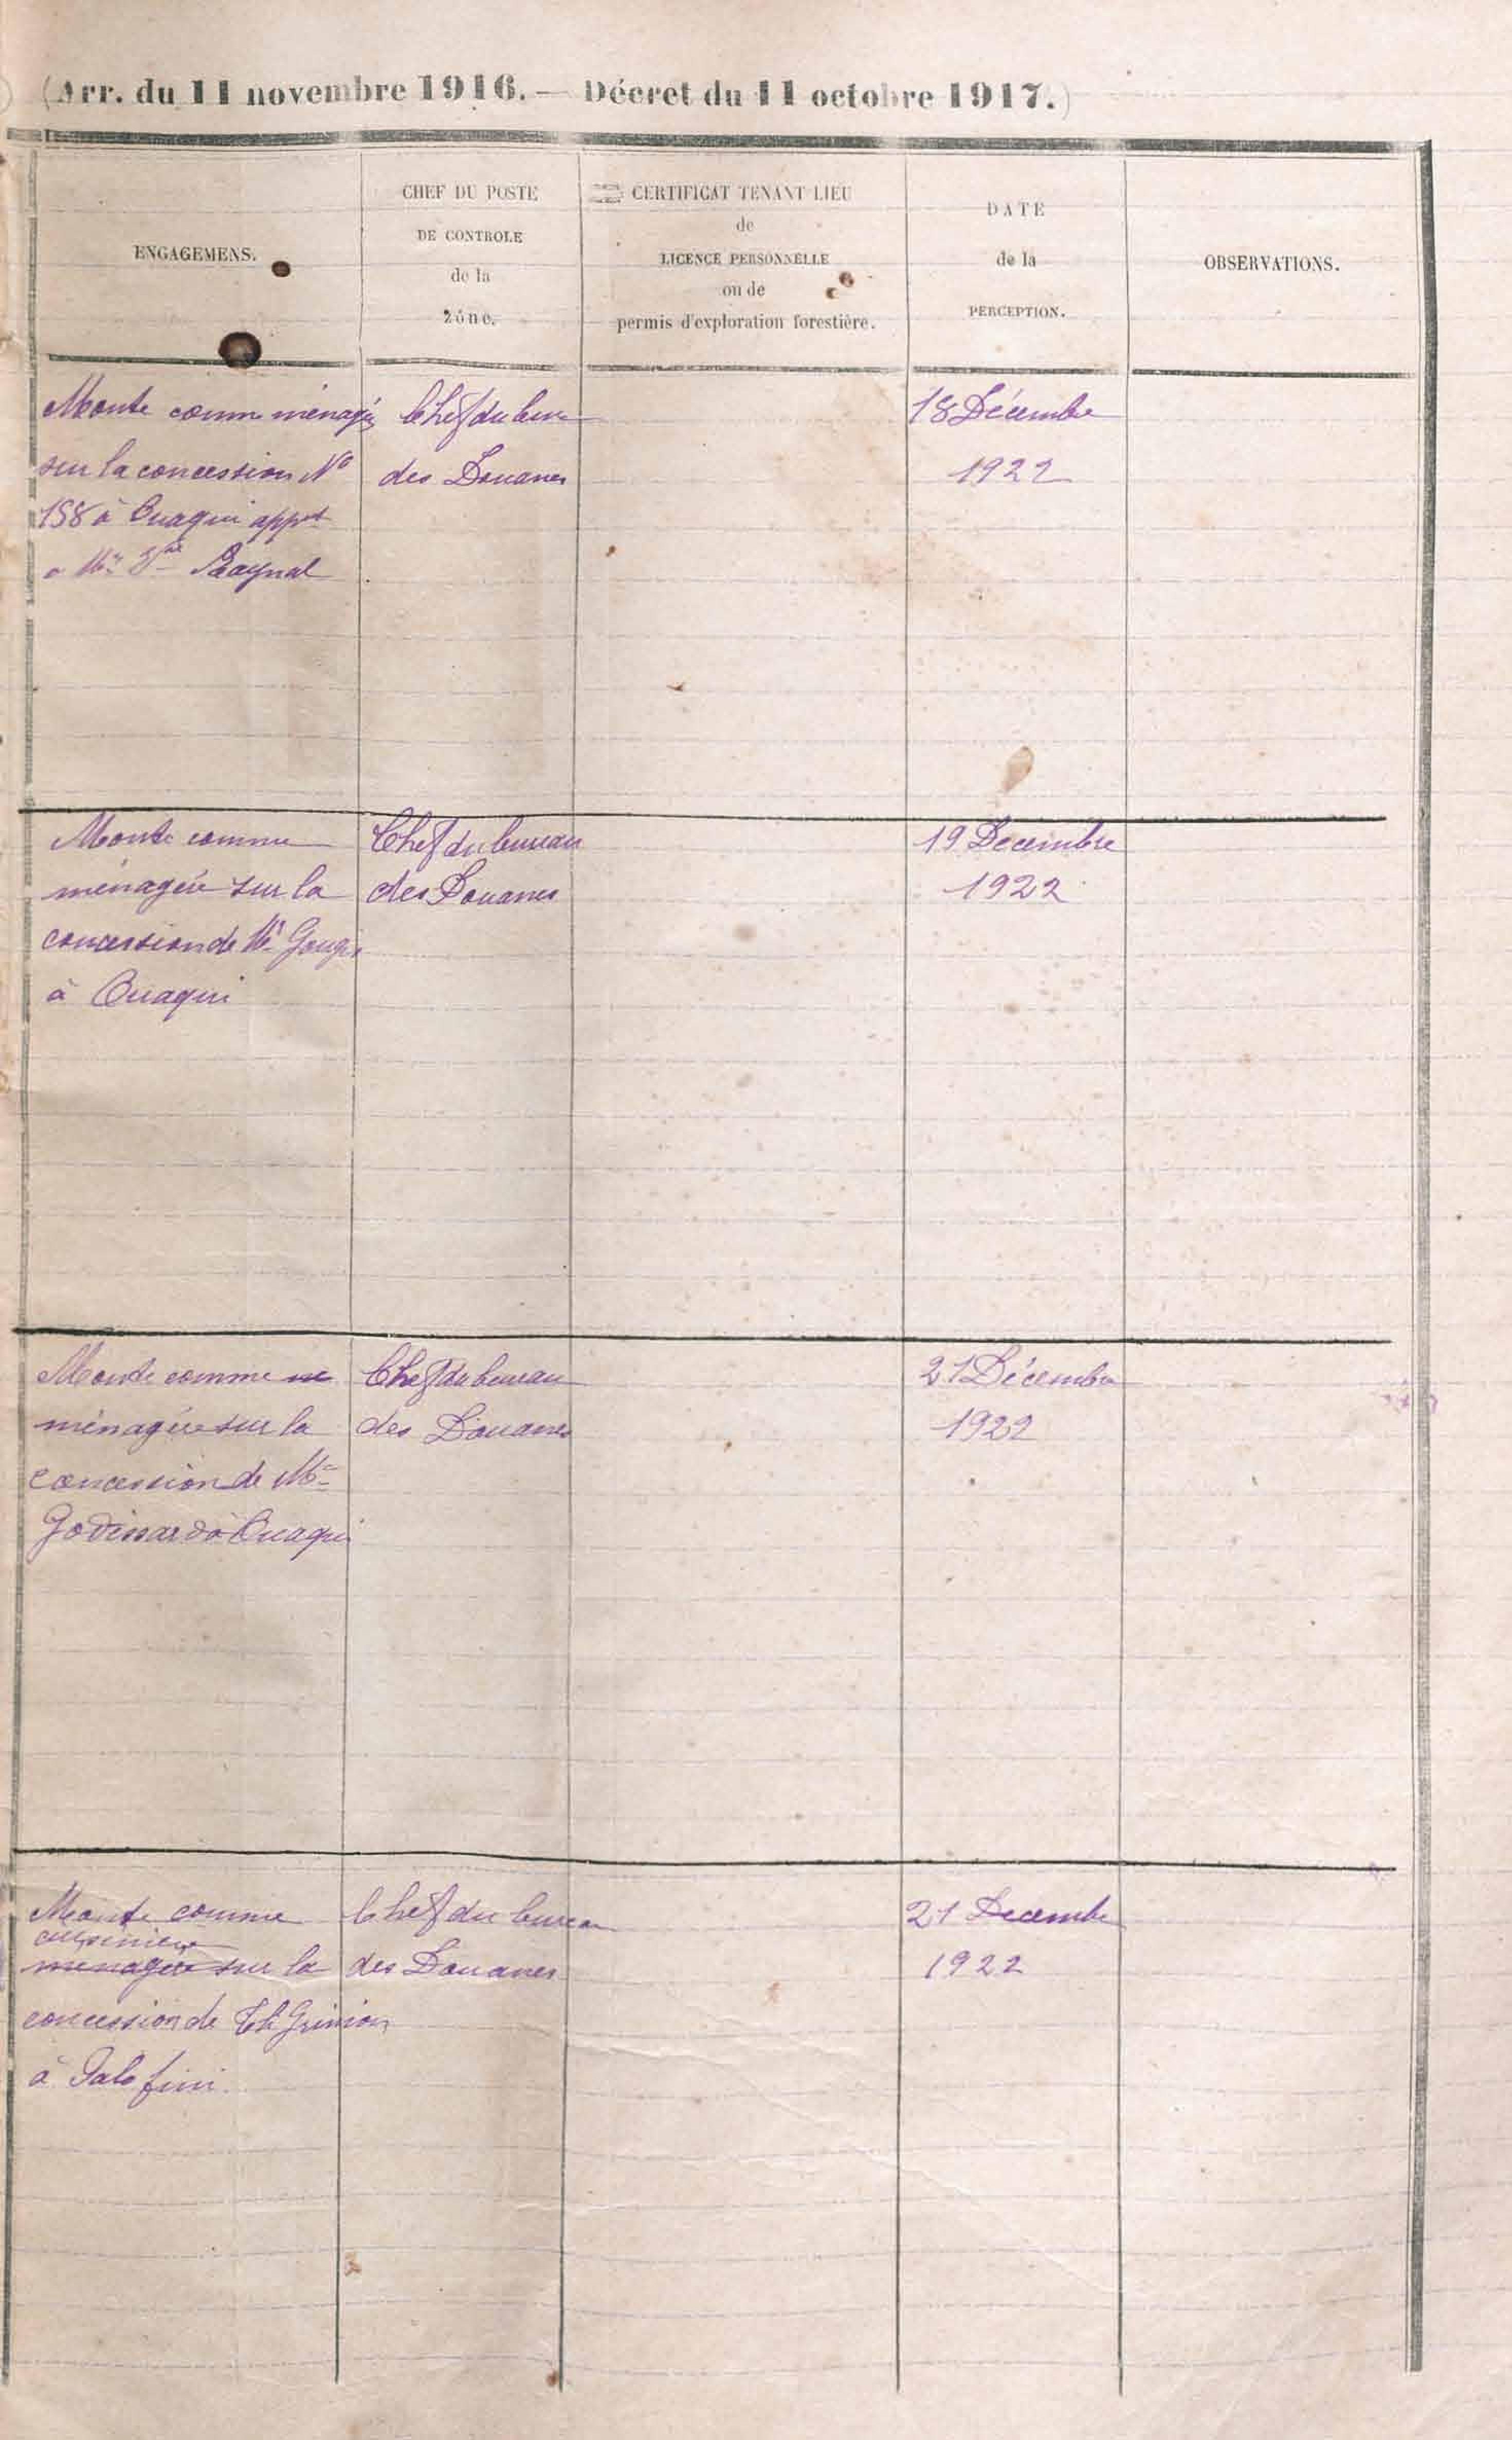 (Arr. du 11 novembre 1916. — Décret du 11 octobre 1917.)
ENGAGEMENS.
CHEF DU POSTE
DE CONTROLE
de la
zône.
CERTIFICAT TENANT LIEU
de
LICENCE PERSONNELLE
ou de
permis d'exploration forestière.
DATE
de la
PERCEPTION.
OBSERVATIONS.
Monte comme ménagère
sur la concession No
158 à Ouaqui appnt
a Mr Raynal
Chef du bureau
des Douanes
18 Décembre
1922
Monte comme
ménagère sur la
concession de Mr Gougis
à Ouaqui
Chef du bureau
des Douanes
19 Decembre
1922
Monte comme me
ménagère sur la
concession de Mr
Godissard à Ouaqui
Chef du bureau
des Douanes
21 Décembre
1922
Monte comme
cuisinière
menagère sur la
concession de Th Grinion
à Palofini.
Chef du bureau
des Douanes
21 Decembre
1922